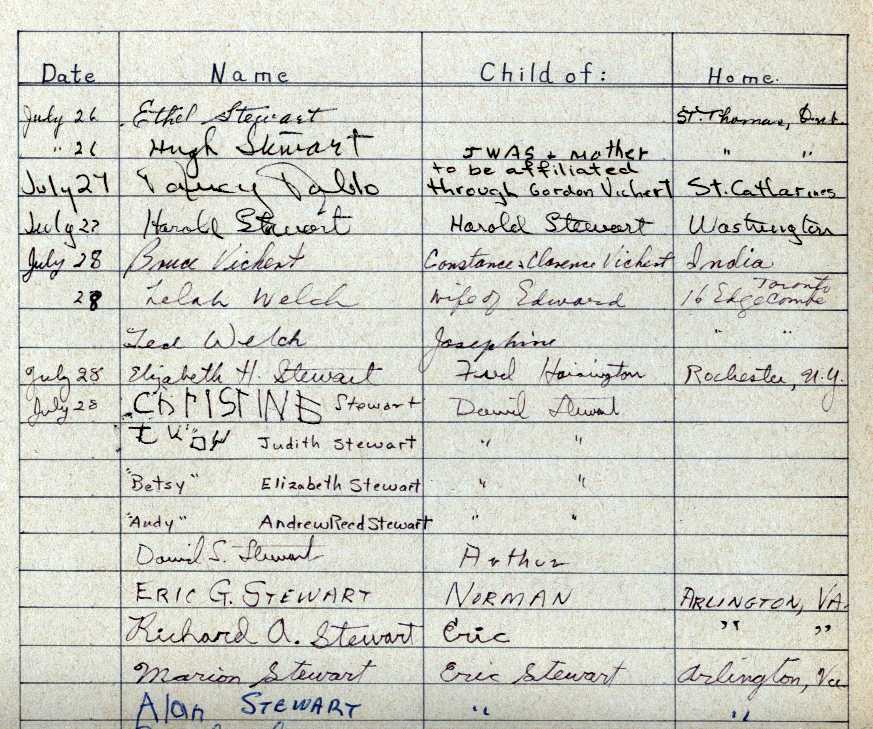 Date Name Child of: Home.
July 26 Ethel Stewart St. Thomas, Ont.
" 26 Hugh Stewart " "
I WAS & Mother
to be affiliated
July 27 Pablo through Gordon Vichert St. Catharines
July 27 Harold Stewart Harold Stewart Washington
July 28 Bruce Vichert Constance & Clarence Vichert India
Toronto
28 Lelah Welch wife of Edward 16 Edgecombe
Ted Welch Josephine " "
July 28 Elizabeth H. Stewart Fred Harrington Rochester, N.Y.
July 28 CHRISTINE Stewart David Stewart
Judith Stewart " "
"Betsy" Elizabeth Stewart " "
"Andy" Andrew Reed Stewart " "
David S. Stewart Arthur
ERIC G. STEWART NORMAN ARLINGTON, VA.
Richard A. Stewart Eric " "
Marion Stewart Eric Stewart Arlington, Va.
Alan STEWART " "